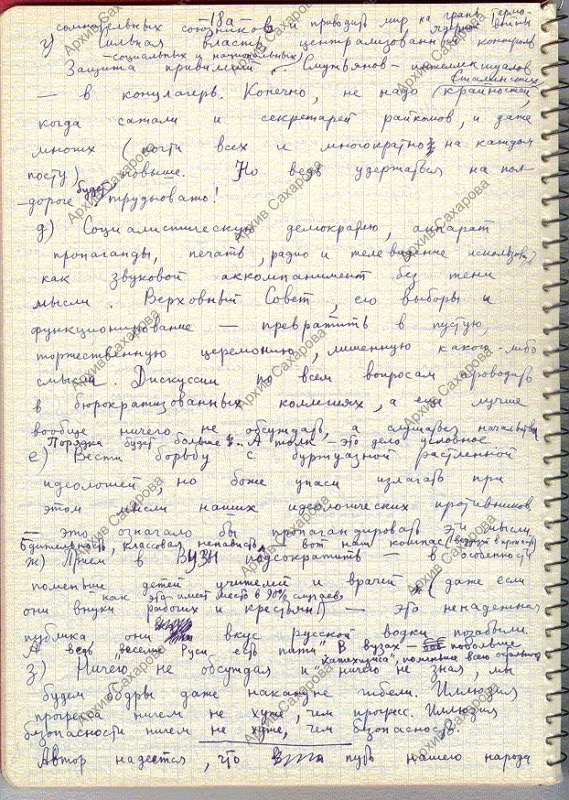 -18а-
сомнительных союзников и приводить мир на грань термоядерной войны
г) Сильная власть, централизованный контроль
социальных и национальных
Защита привилегий. Смутьянов-интеллектуалов
— в концлагерь. Конечно, не надо (сталинских крайностей,
когда сажали и секретарей райкомов, и даже
многих (почти всех и многократно на каждом
посту) повыше. Но ведь удержаться на пол-
дороге будет трудновато!
д) Социалистическую демократию, аппарат
пропаганды, печать, радио и телевидение использовать
как звуковой аккомпанимент без тени
мысли. Верховный Совет, его выборы и
функционирование — превратить в пустую,
торжественную церемонию, лишенную какого-либо
смысла. Дискуссии по всем вопросам проводить
в бюрократизованных коллегиях, а еще лучше
вообще ничего не обсуждать, а слушаться начальства
Порядка будет больше, а толк — это дело условное
е) Вести борьбу с буржуазной растленной
идеологией, но боже упаси излагать при
этом мысли наших идеологических противников
— это означало бы пропагандировать эти мысли.
Бдительность, классовая ненависть — вот наш компас
ж) Прием в ВУЗы подсократить — в особенности
поменьше детей учителей и врачей (даже если
как это имеет место в 90% случаев
они внуки рабочих и крестьян) — это ненадежная
публика, они вкус русской водки позабыли.
А ведь веселие Руси есть пити. В вузах — побольше
"катехизиса", поменьше всего остального
з) Ничего не обсуждая и ничего не зная, мы
будем бодры даже накануне гибели. Иллюзия
прогресса ничем не хуже, чем прогресс. Иллюзия
безопасности ничем не хуже, чем безопасность.
Автор надеется, что путь нашего народа
Архив Сахарова